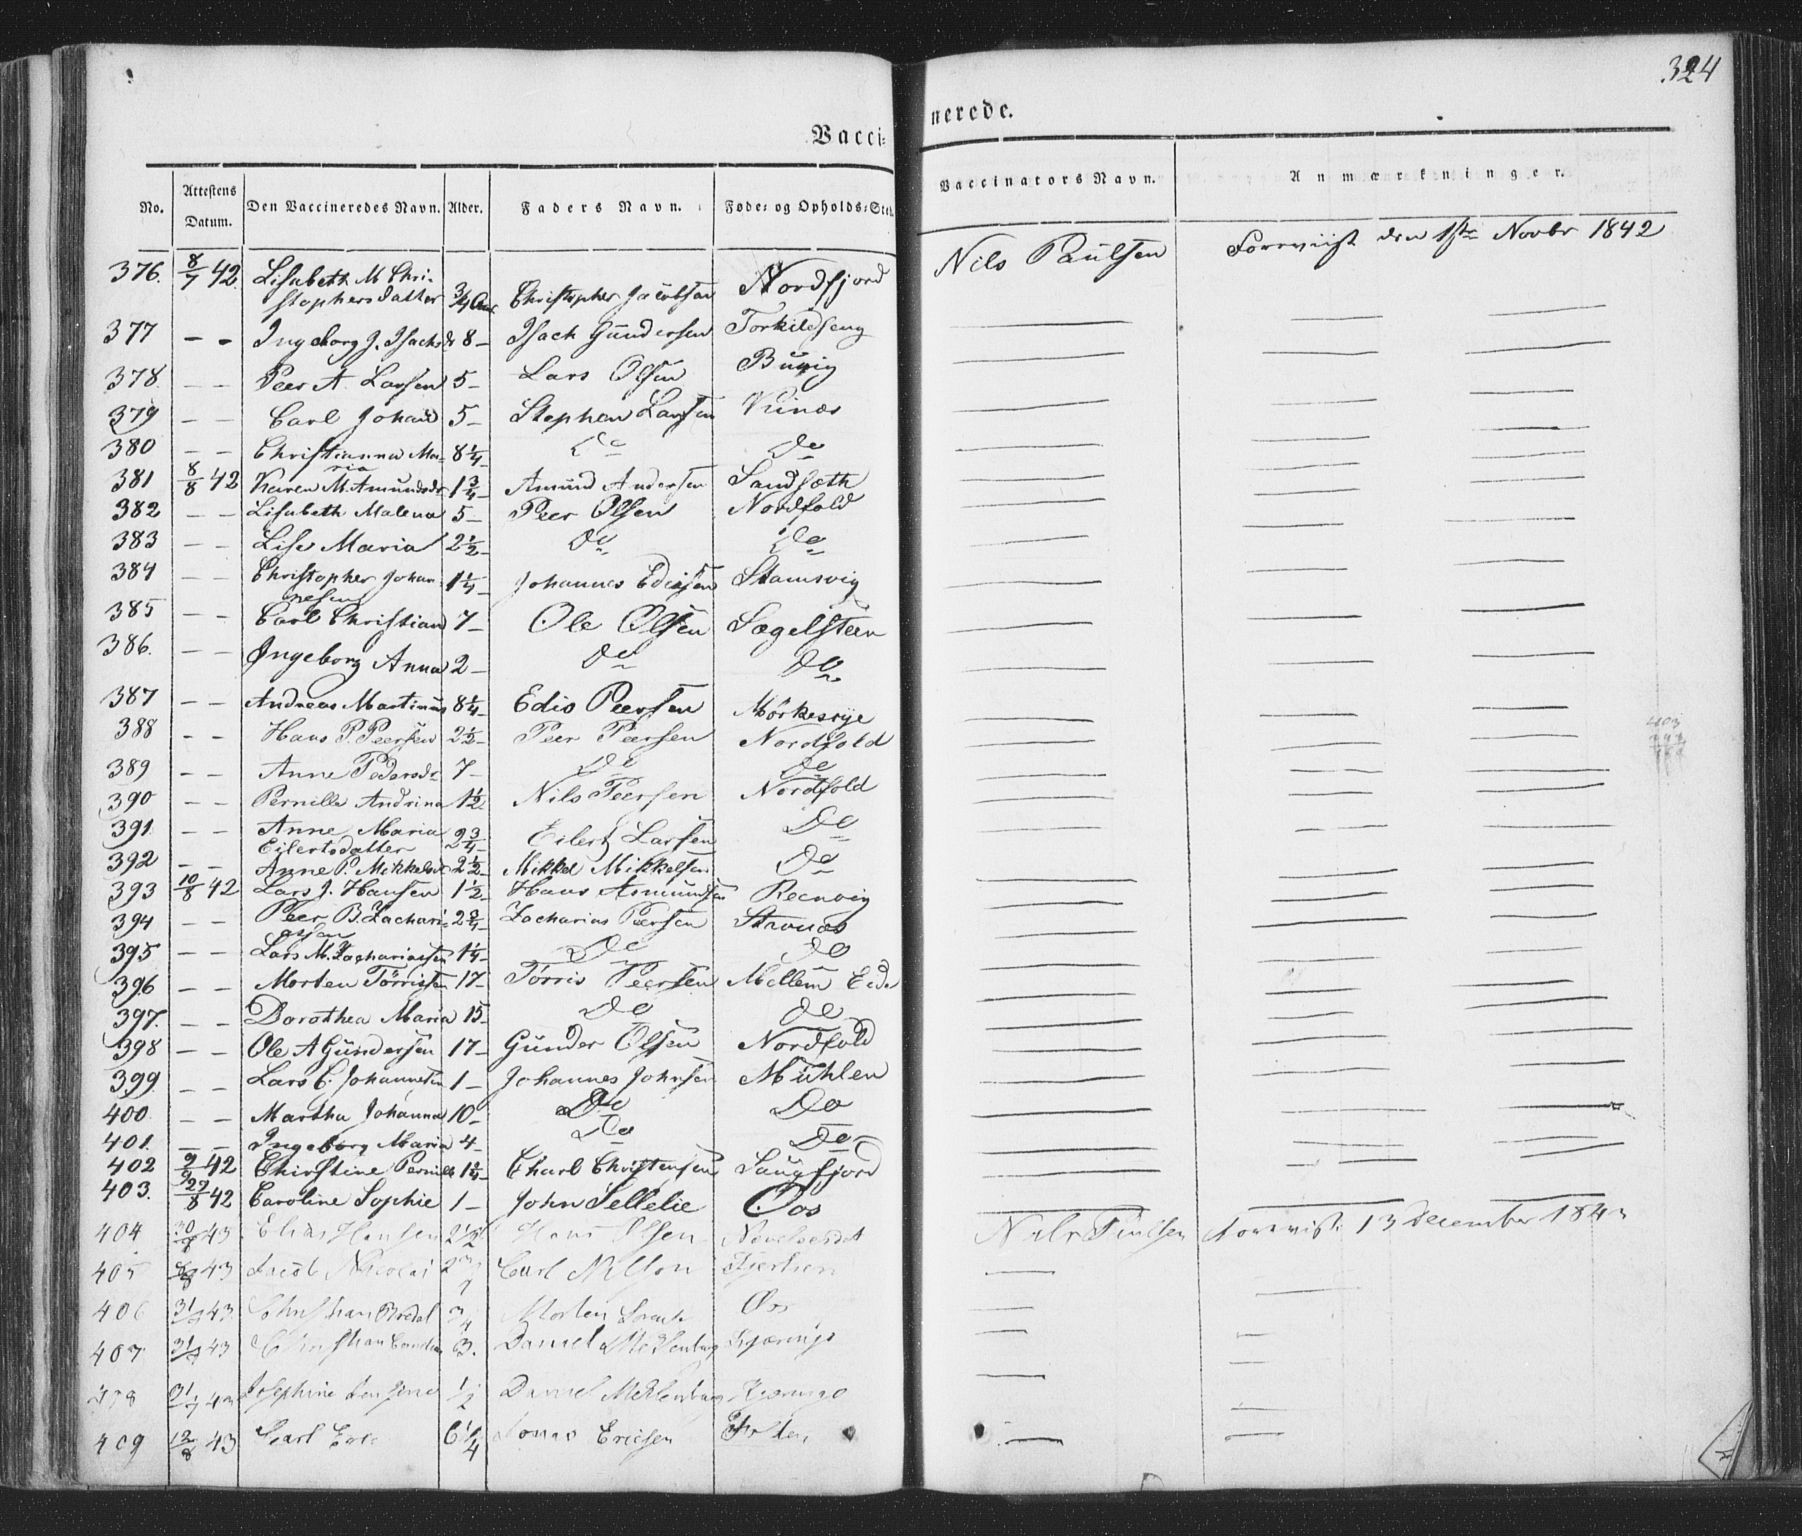 324
Vacci-
nerede.
No. Attestens Datum. Den Vaccineredes Navn. Alder. Faders Navn. Føde- og Opholds-Sted. Vaccinators Navn. Anmærkninger.
376. 8/7 42. Lisabeth M Chri- Nordfjord Nils Paulsen Foreviist den 1ste Novbr 1842
stophersdatter 3/4 Aar Christopher Jacobsen
377 - - Ingeborg J. Isachsdr 8 - Isach Gundersen Torkildseng
378. - - Peer A. Larsen 5 - Lars Olsen Buvig
379 - - Carl Johan 5 - Stephen Larsen Vinæs
380 - - Christianna Ma- 8 1/4 - Do Do
ria
381 8/8 42 Karen M. Amundsdr 1 3/4 - Amund Andersen Sandsæth
382 - - Lisabeth Malena 5 - Peer Olsen Nordfold
383 - - Lise Maria 2 1/2 - Do Do
384 - - Christopher Johan- 1 1/4 - Johannes Edissen Stamsvig
nesen
385 - - Carl Christian 7 - Ole Olsen Sægelsteen
386. - - Ingeborg Anna 2 - Do Do
387 - - Andreas Martinus 8 1/4 - Edis Peersen Mørkesvije
388 - - Hans P. Peersen 2 1/2 - Peer Peersen Nordfold
389 - - Anne Pedersdr 7 - Do Do
390 - - Pernille Andrina 1 1/2 Nils Peersen Nordfold
391. - - Anne Maria 2 3/4 - Eilert Larsen Do
Eilertsdatter
392 - - Anne P. Mikkelsdr 2 1/2 - Mikkel Mikkelsen Do
393 10/8 42 Lars J. Hansen 1 1/2 - Hans Asmundsen Reenvig
394 - - Peer B. Zachari- 2 3/4 - Zacharias Peersen Stavnæs
asen
395 - - Lars M. Zachariassen 1 1/4 - Do Do
396 - - Morten Tørrissen 17 - Tørris Peersen Mellem Eide
397. - - Dorothea Maria 15 - Do Do
398 - - Ole A Gundersen 17 - Gunder Olsen Nordfold
399 - - Lars C. Johannesen 1 - Johannes Johnsen Mühlen
400. - - Martha Johanna 10 - Do Do
401. - - Ingeborg Maria 4 - Do Do
402 9/9 42 Christine Pernille 1 3/4 - Charl Christensen Saugfjord
403. 29/8 42 Caroline Sophie 1 - John Sellelie Oos
404 30/7 43 Elias Hansen 2 1/2 Hans Olsen Nils Paulsen Forevist 13 December 1843
405 43 Jacob Nicolai Carl Nilson
406 31/7 43 Christian Bredal 3/4 Morten Os
407 31/7 43 Christian 3. Daniel Meklenburg Kjæringø
31/7 43 Josephine 1/2 Daniel Meklenburg Kjæringø
409 12/8 43 Carl 6 1/4 Jonas Ericsen Folden
403